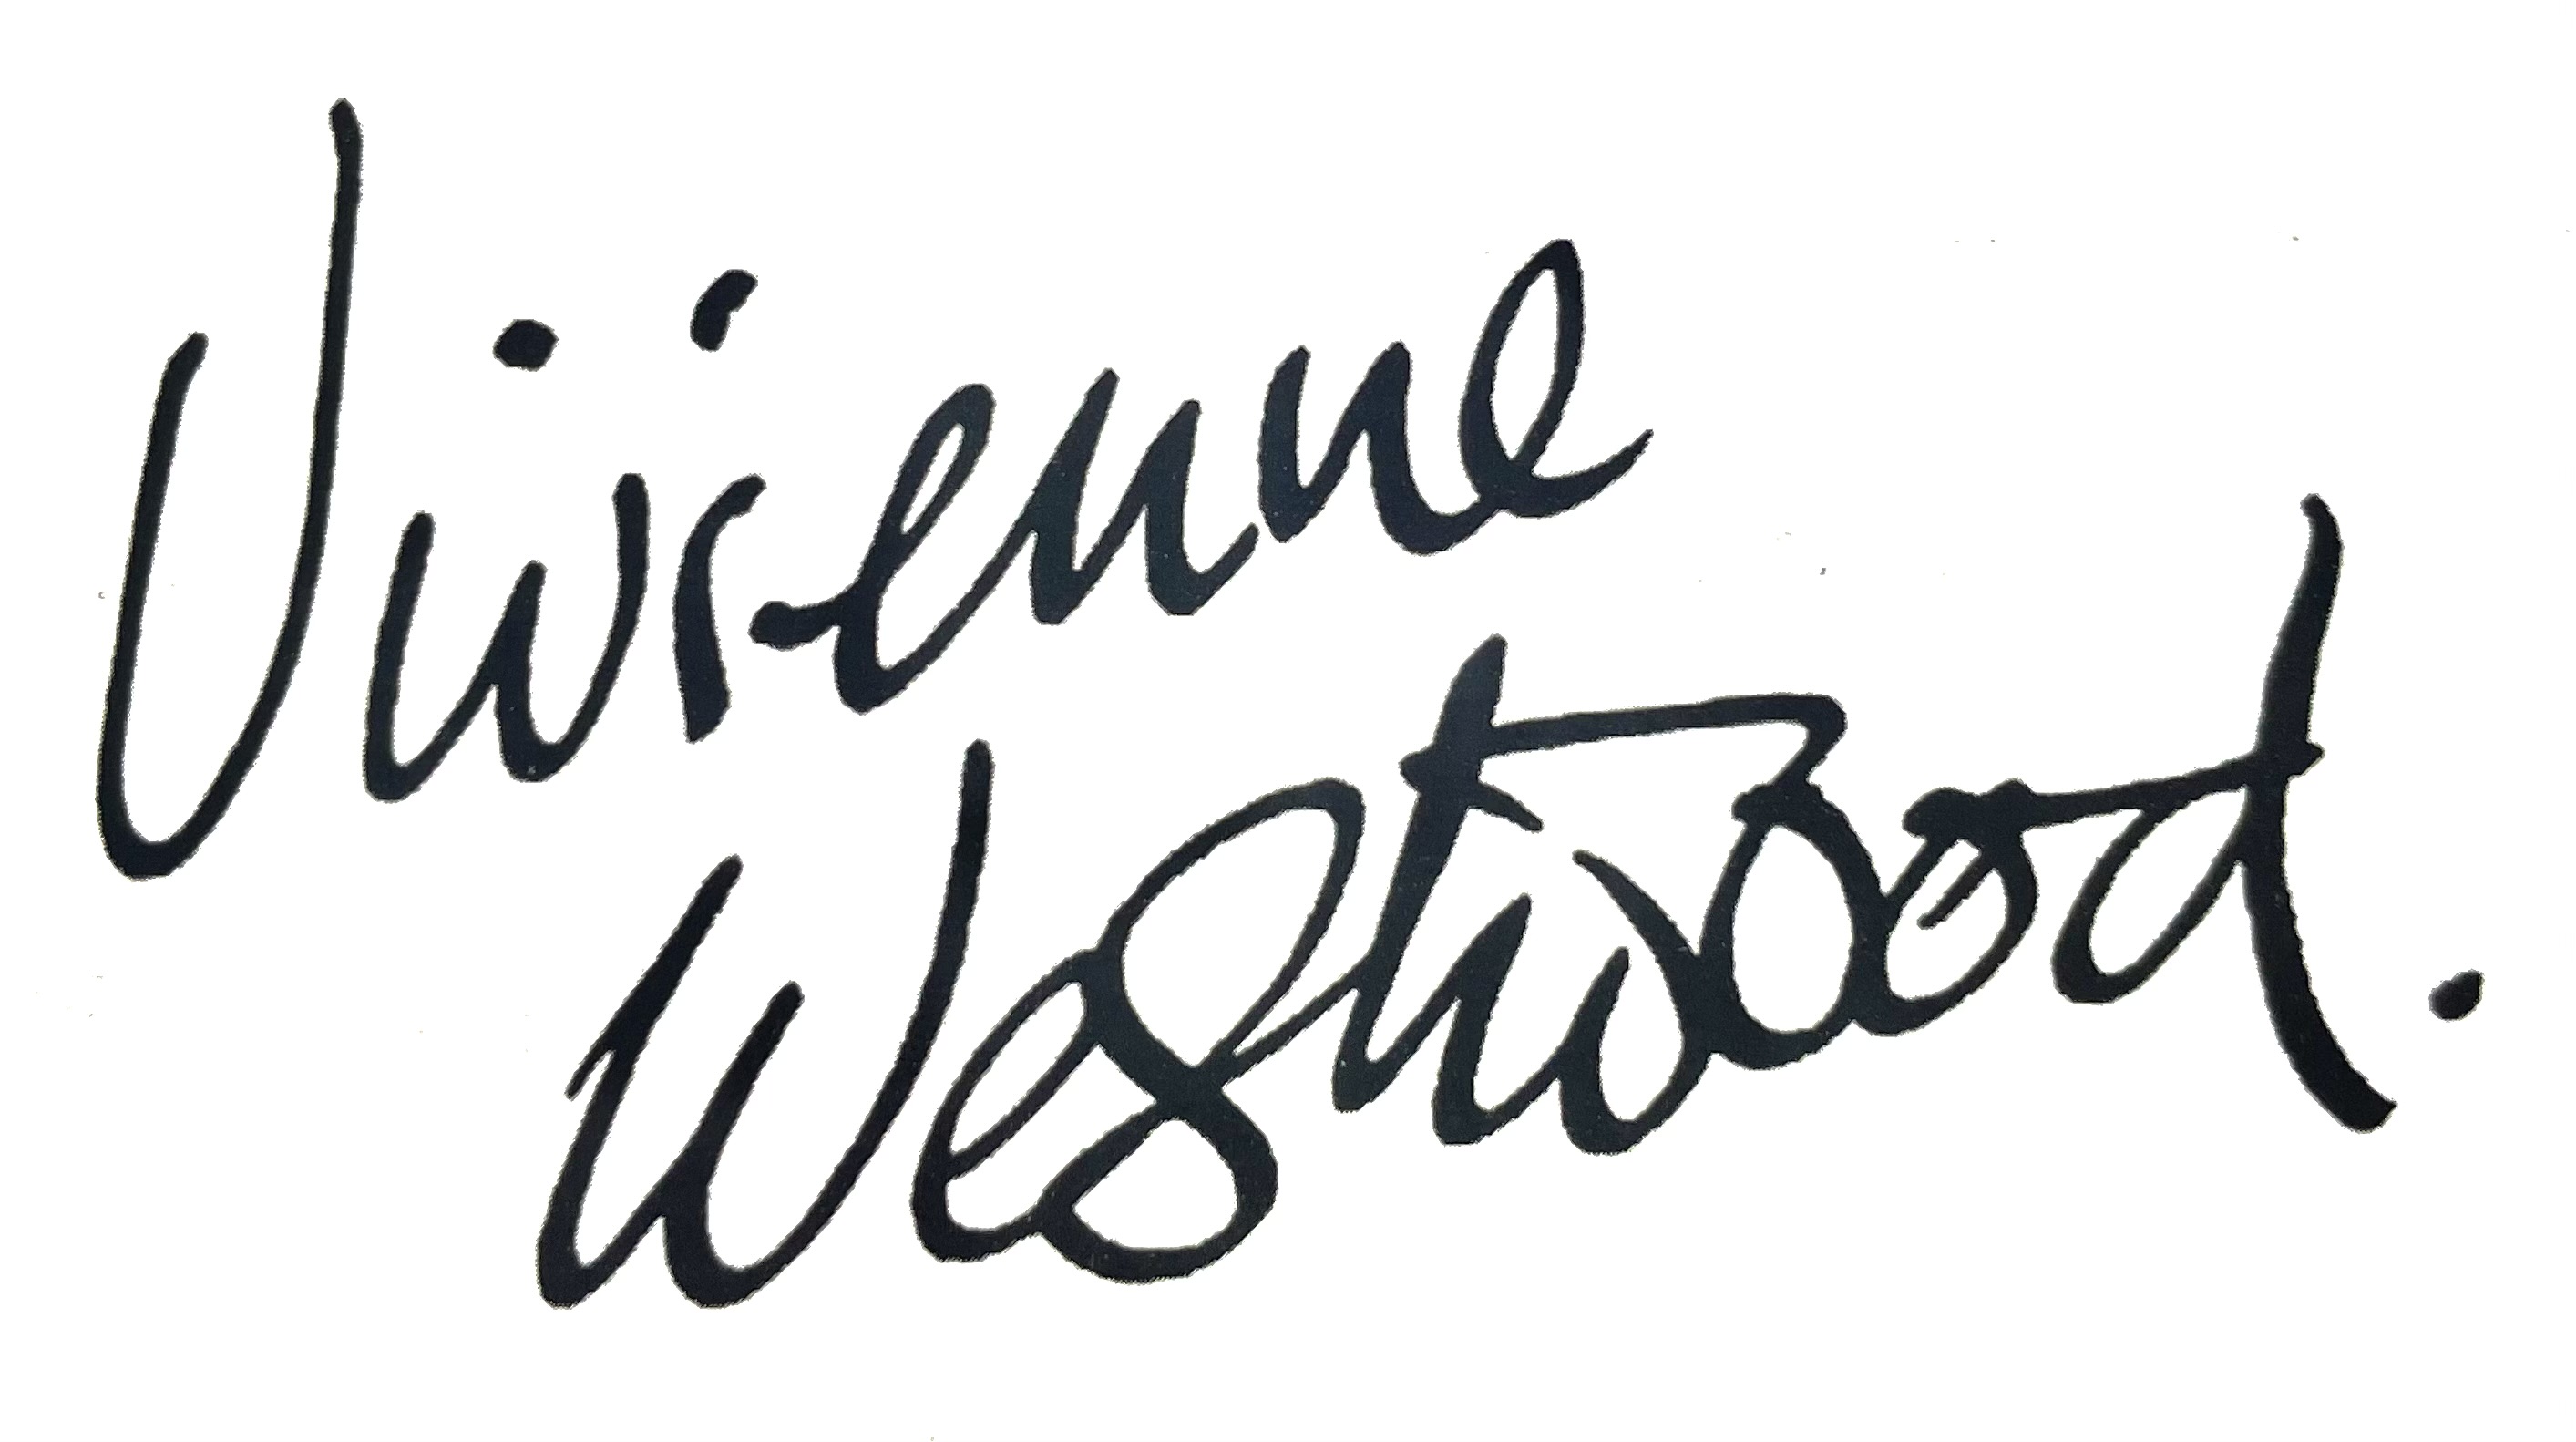 Vivienne
Westwood.